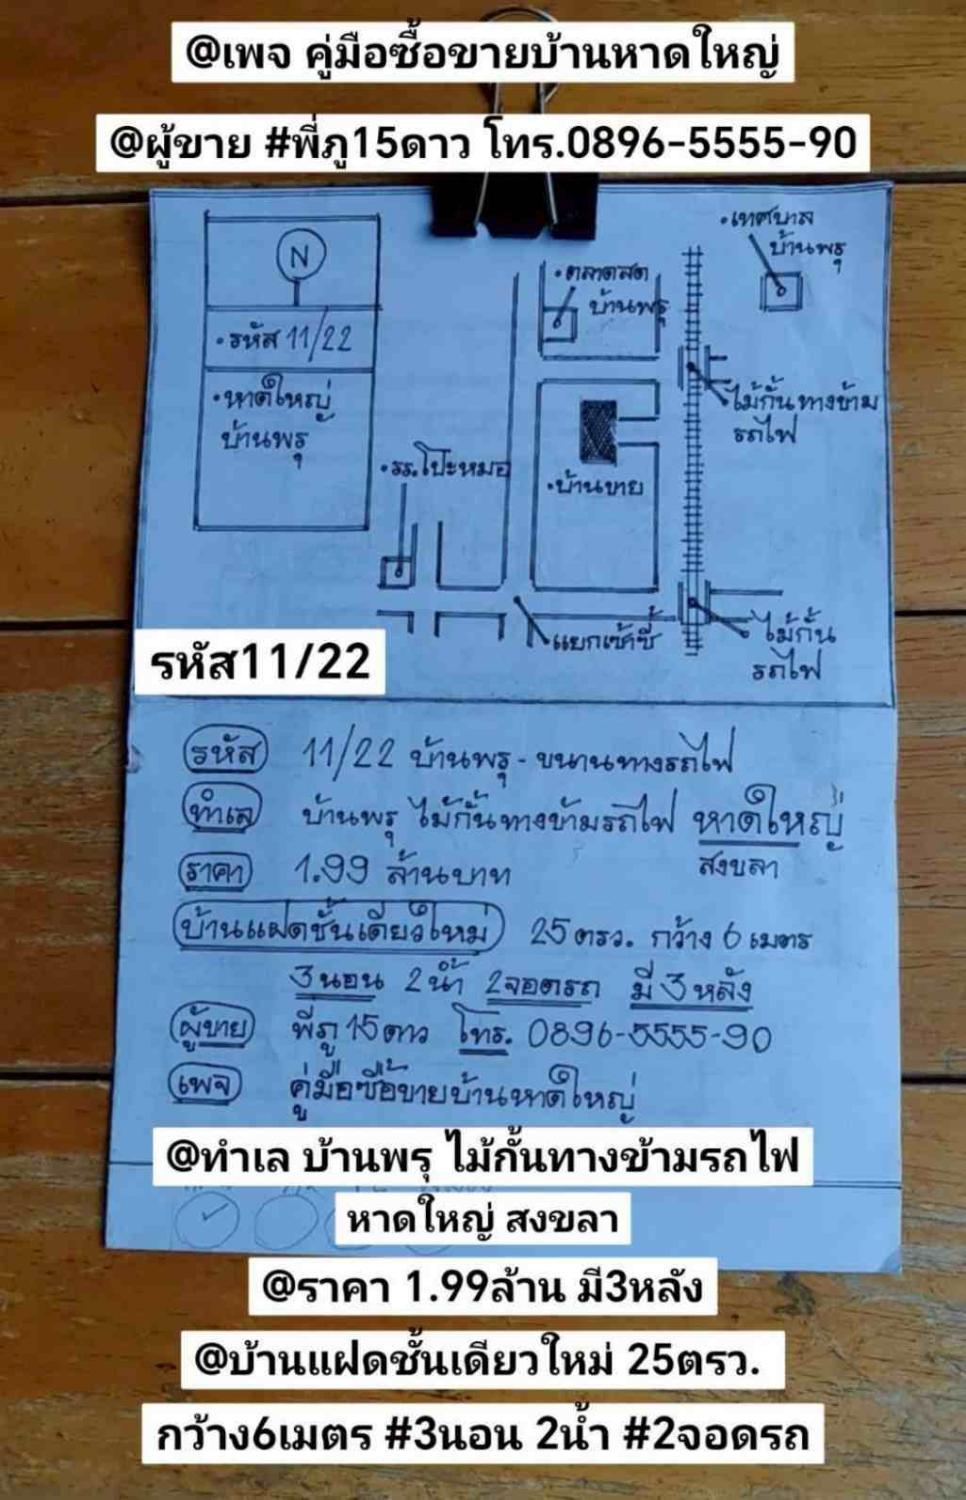 @เพจ คู่มือซื้อขายบ้านหาดใหญ่
@ผู้ขาย #พี่ภู15ดาว โทร.0896-5555-90
N
•รหัส 11/22
•หาดใหญ่
บ้านพรุ
•เทศบาล
บ้านพรุ
•ตลาดสด
บ้านพรุ
ไม้กั้นทางข้าม
รถไฟ
•รร.โป๊ะหมอ
•บ้านขาย
แยกเซ้าซี้
ไม้กั้น
รถไฟ
รหัส11/22
รหัส 11/22 บ้านพรุ - ขนานทางรถไฟ
ทำเล บ้านพรุ ไม้กั้นทางข้ามรถไฟ หาดใหญ่
สงขลา
ราคา 1.99 ล้านบาท
บ้านแฝดชั้นเดียวใหม่ 25 ตรว. กว้าง 6 เมตร
3 นอน 2 น้ำ 2 จอดรถ มี 3 หลัง
ผู้ขาย พี่ภู 15 ดาว โทร. 0896-5555-90
เพจ คู่มือซื้อขายบ้านหาดใหญ่
@ทำเล บ้านพรุ ไม้กั้นทางข้ามรถไฟ
หาดใหญ่ สงขลา
@ราคา 1.99ล้าน มี3หลัง
@บ้านแฝดชั้นเดียวใหม่ 25ตรว.
กว้าง6เมตร #3นอน 2น้ำ #2จอดรถ